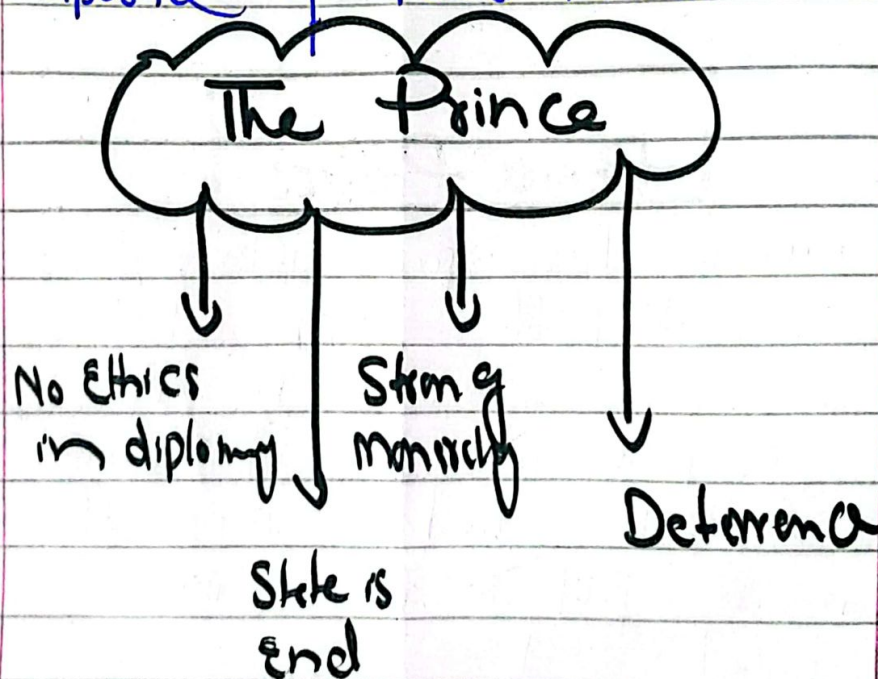 The Prince
No Ethics
in diplomacy
State is
End
Strong
monarchy
Deterrence